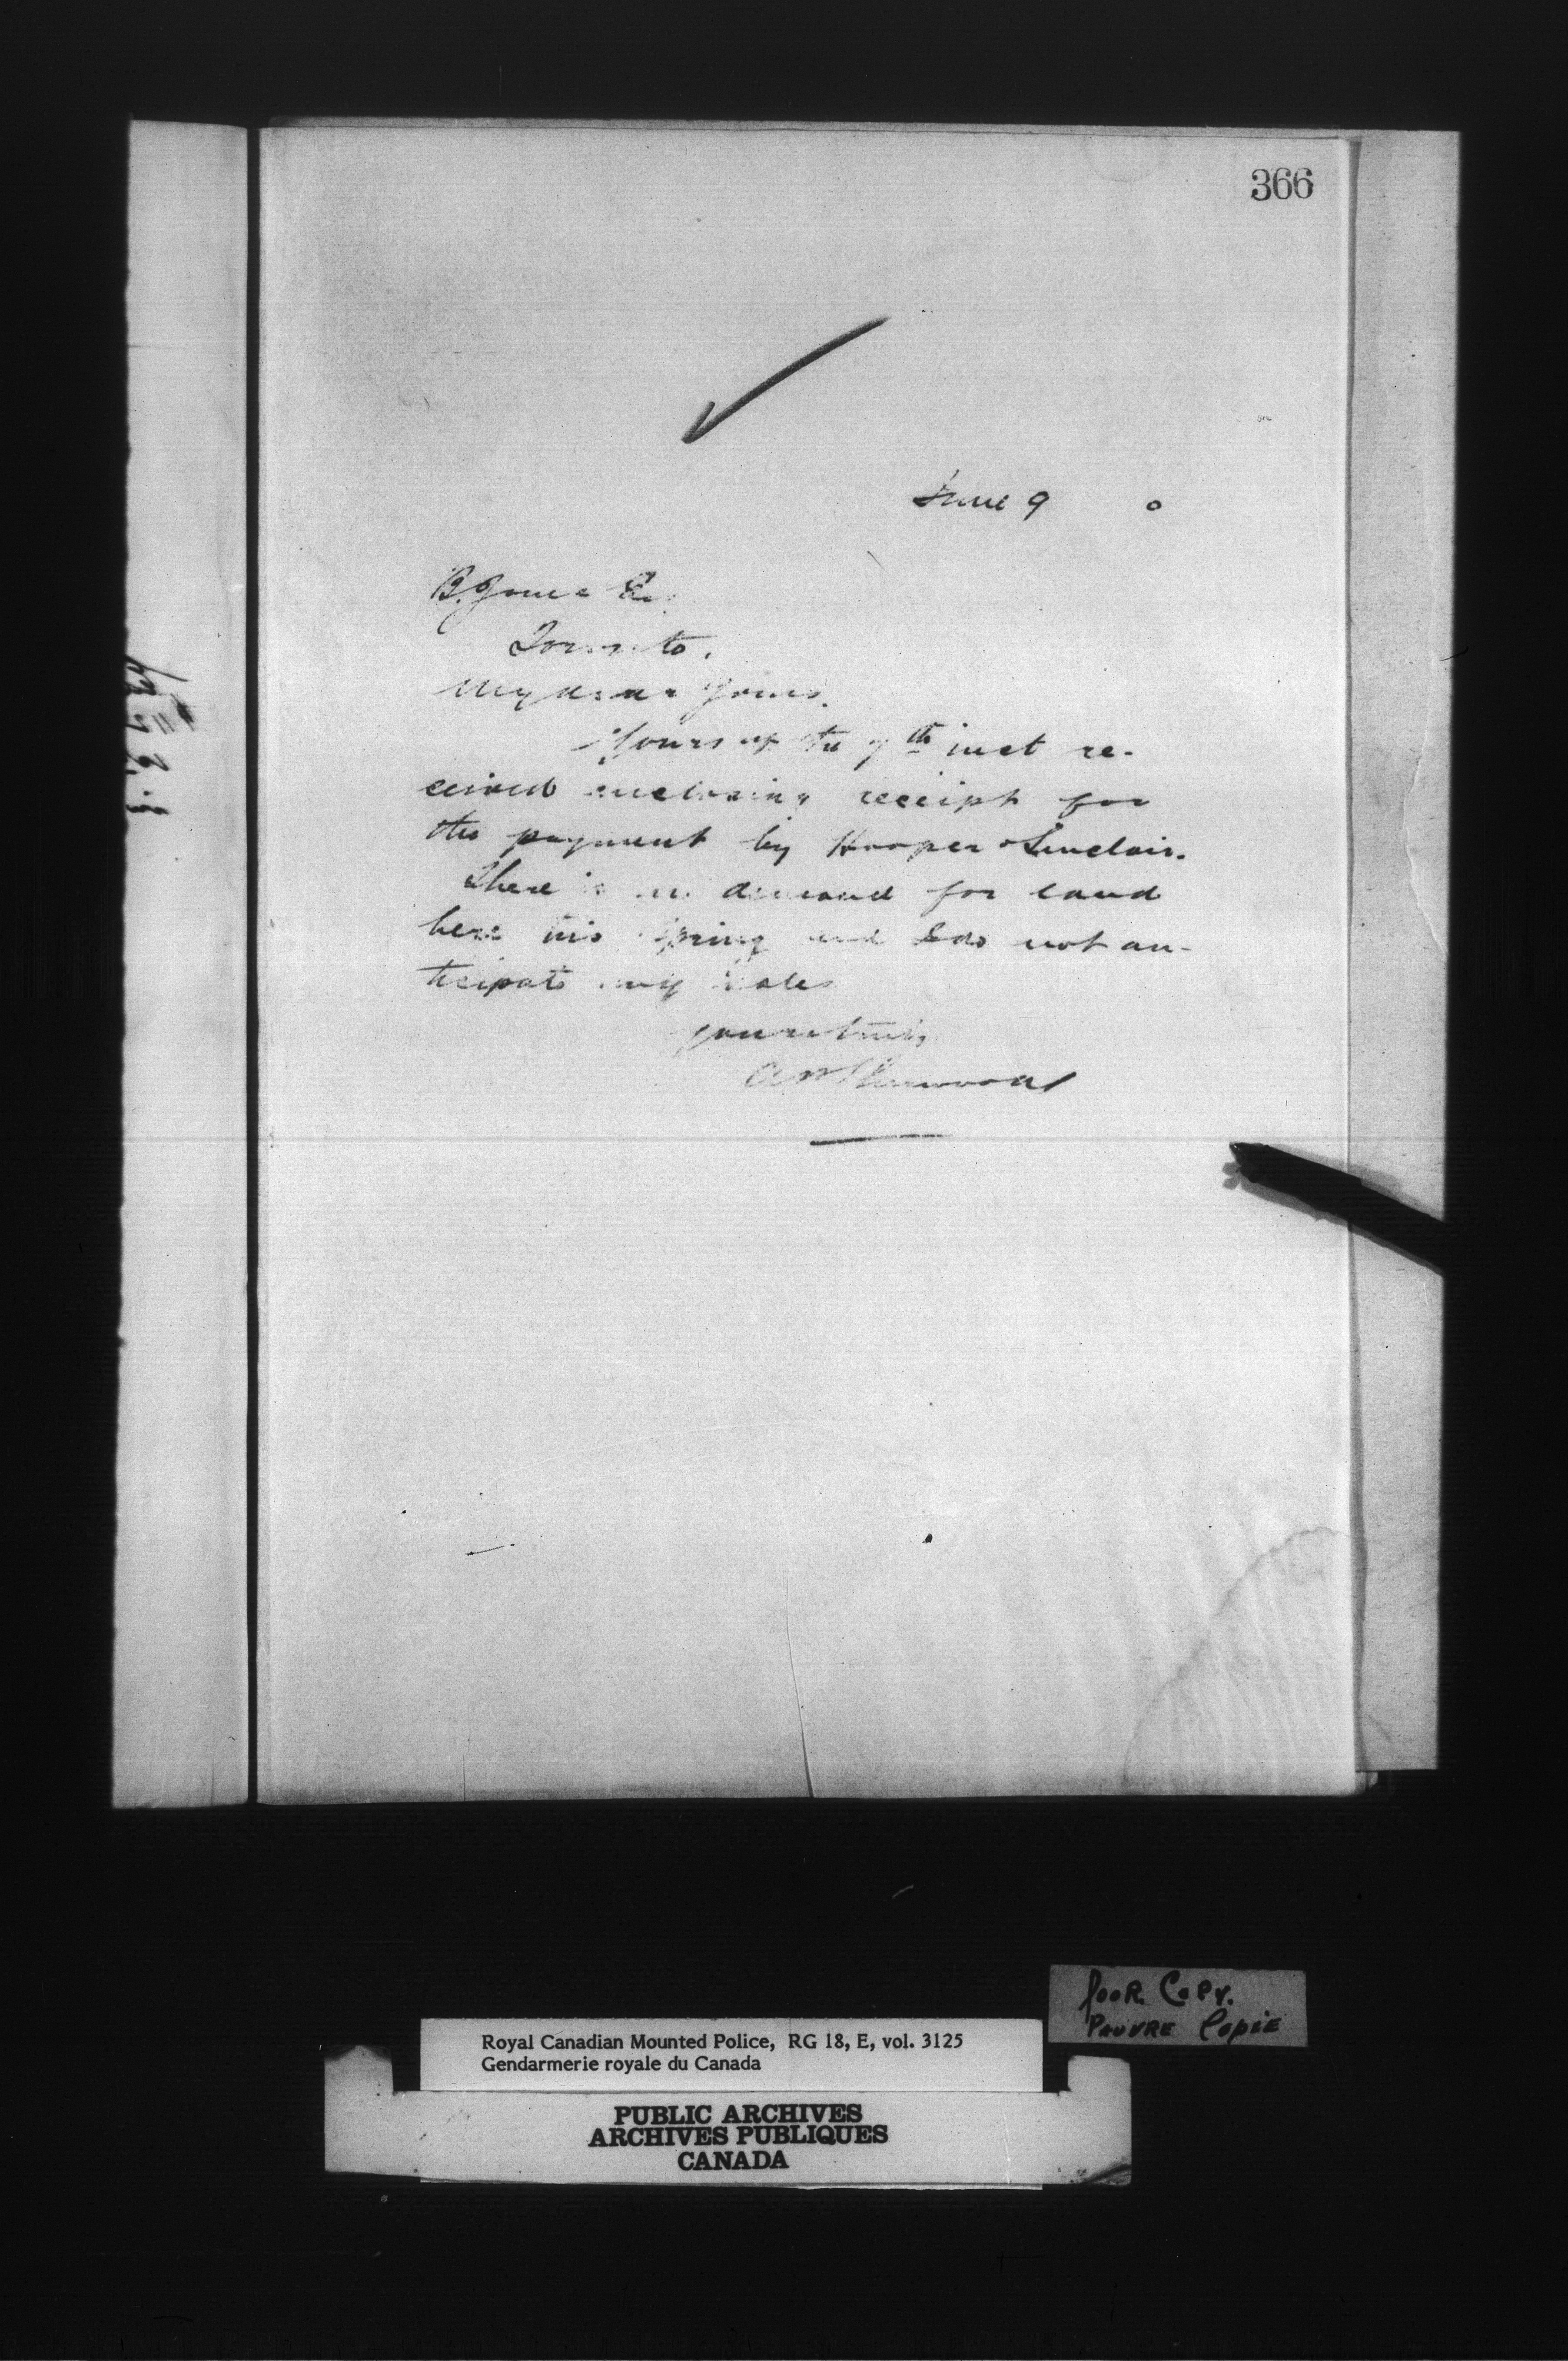 366
June 9 0
B. Jones Esq.
Toronto.
My dear Jones.
Yours of the 7th inst re-
ceived enclosing receipt for
the payment by Hooper & Sinclair.
There is no demand for land
here this spring and I do not an-
ticipate any sales
yours truly
A P Sherwood
Poor Copy.
Pauvre Copie
Royal Canadian Mounted Police, RG 18, E, vol. 3125
Gendarmerie royale du Canada
PUBLIC ARCHIVES
ARCHIVES PUBLIQUES
CANADA